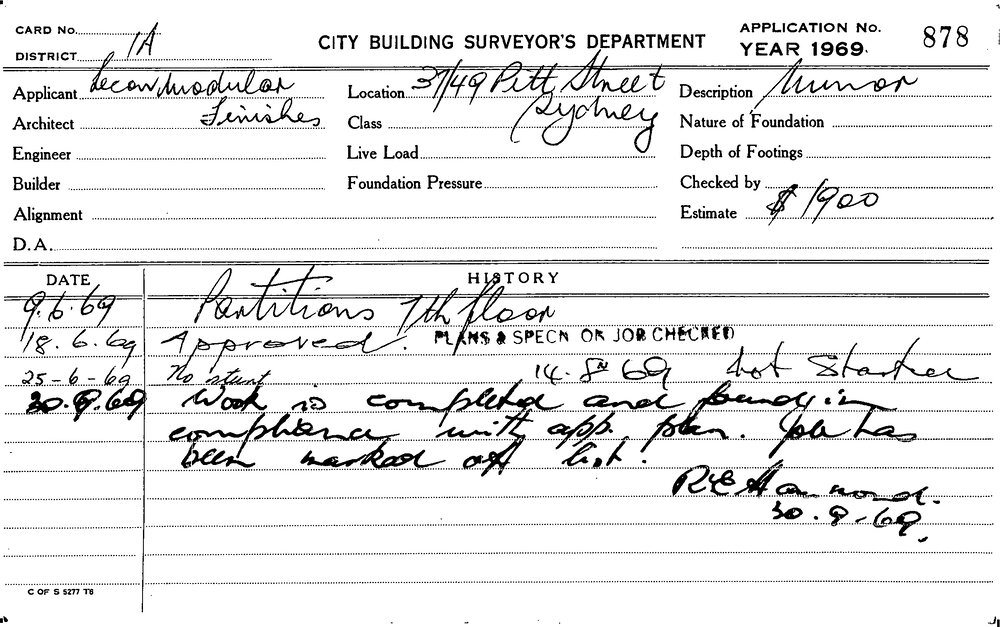 CARD No.
CITY BUILDING SURVEYOR'S DEPARTMENT
APPLICATION No.
YEAR 1969.
878
DISTRICT 1A
Applicant Modular
Finishes
Location 37/49 Pitt Street
Sydney
Description Minor
Architect
Class
Nature of Foundation
Engineer
Live Load
Depth of Footings
Builder
Foundation Pressure
Checked by
Alignment
Estimate $1900
D.A.
DATE HISTORY
9.6.69 Partitions 7th floor
18.6.69 Approved. PLANS & SPECN ON JOB CHECKED
25-6-69 No start 14.8.69 Not Started
30.9.69 Work is completed and found in
compliance with app. plan. Job has
been marked off list.
R E Hammond.
30.9.69.
C OF S 5277 T8